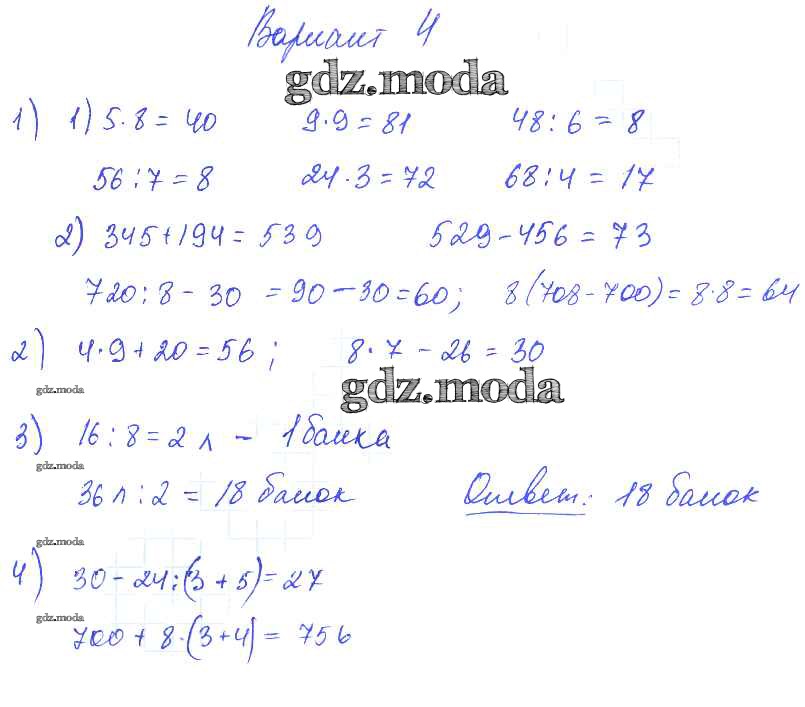 Вариант 4
gdz.moda
1) 1) 5·8 = 40 9·9 = 81 48:6 = 8
56:7 = 8 24·3 = 72 68:4 = 17
2) 345+194 = 539 529-456 = 73
720:8 - 30 = 90-30=60; 8(708-700) = 8·8 = 64
2) 4·9+20 = 56; 8·7 - 26 = 30
gdz.moda gdz.moda
3) 16:8 = 2 л - 1 банка
gdz.moda
36 л:2 = 18 банок Ответ: 18 банок
gdz.moda
4) 30-24:(3+5) = 27
gdz.moda
700 + 8·(3+4) = 756